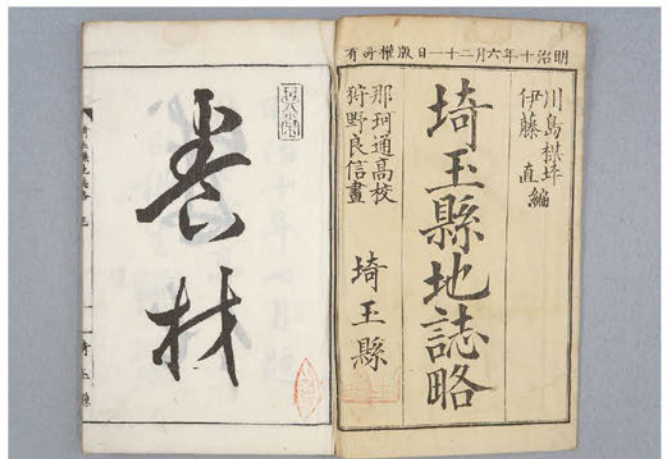 明治十年六月二十一日版權所有
川島楳坪
伊藤 直 編
埼玉縣地誌略
那珂通高校
狩野良信畫
埼玉縣
養材
埼玉縣